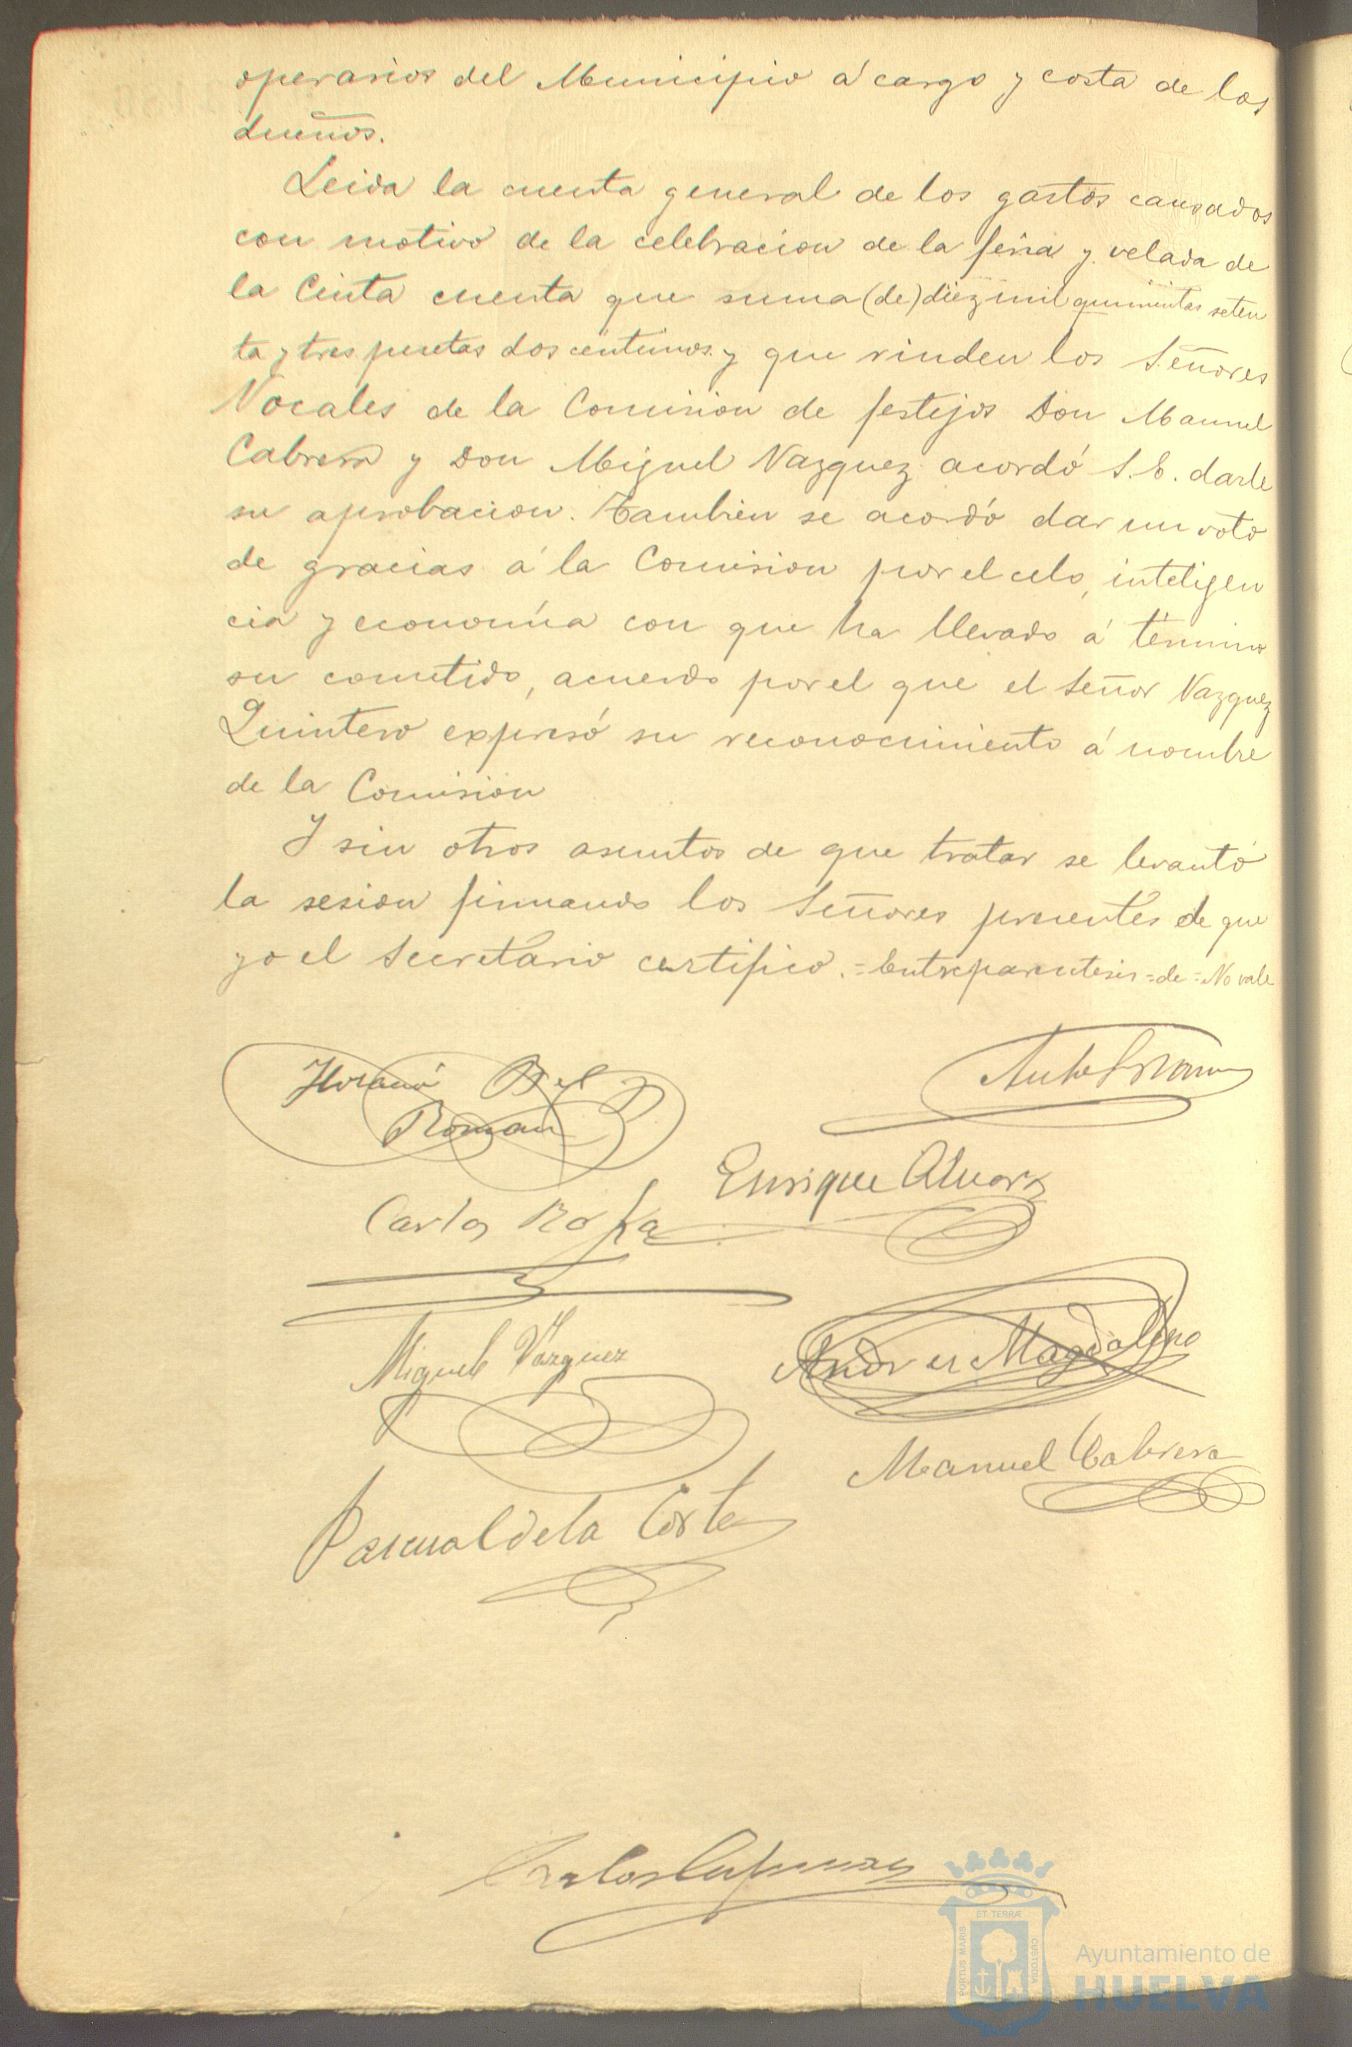 operarios del Municipio á cargo y costa de los
dueños.
Leida la cuenta general de los gastos causados
con motivo de la celebracion de la feria y velada de
la Cinta cuenta que suma (de) diez mil quinientas seten
ta y tres pesetas dos centimos y que rinden los Señores
Vocales de la Comision de festejos Don Manuel
Cabrera y Don Miguel Vazquez acordó S. E. darle
su aprobacion. Tambien se acordó dar un voto
de gracias á la Comision por el celo, inteligen
cia y economía con que ha llevado á término
su cometido, acuerdo por el que el Señor Vazquez
Quintero expresó su reconocimiento á nombre
de la Comision
Y sin otros asuntos de que tratar se levantó
la sesion firmando los Señores presentes de que
yo el Secretario certifico. = Entreparentesis = de = No vale
Horacio Bel
Roman
Carlos Rofa
Enrique Alvarz
Miguel Vázquez
Andres Magdaleno
Manuel Cabrera
Pascual de la Corte
PORTUS MARIS
ET TERRÆ
CUSTODIA
Ayuntamiento de
HUELVA